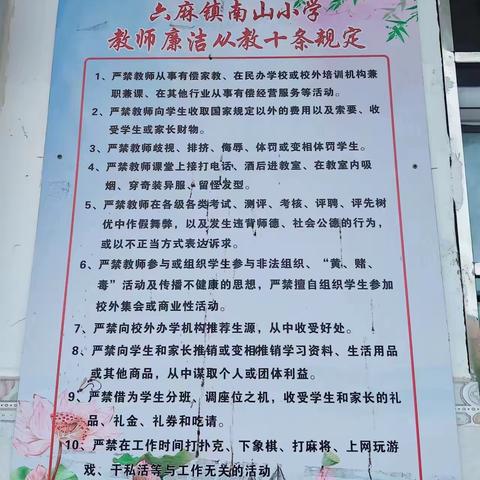 六麻镇南山小学
教师廉洁从教十条规定
1、严禁教师从事有偿家教、在民办学校或校外培训机构兼
职兼课、在其他行业从事有偿经营服务等活动。
2、严禁教师向学生收取国家规定以外的费用以及索要、收
受学生或家长财物。
3、严禁教师歧视、排挤、侮辱、体罚或变相体罚学生。
4、严禁教师课堂上接打电话、酒后进教室、在教室内吸
烟、穿奇装异服、留怪发型。
5、严禁教师在各级各类考试、测评、考核、评聘、评先树
优中作假舞弊，以及发生违背师德、社会公德的行为，
或以不正当方式表达诉求。
6、严禁教师参与或组织学生参与非法组织、“黄、赌、
毒”活动及传播不健康的思想，严禁擅自组织学生参加
校外集会或商业性活动。
7、严禁向校外办学机构推荐生源，从中收受好处。
8、严禁向学生和家长推销或变相推销学习资料、生活用品
或其他商品，从中谋取个人或团体利益。
9、严禁借为学生分班、调座位之机，收受学生和家长的礼
品、礼金、礼券和吃请。
10、严禁在工作时间打扑克、下象棋、打麻将、上网玩游
戏、干私活等与工作无关的活动